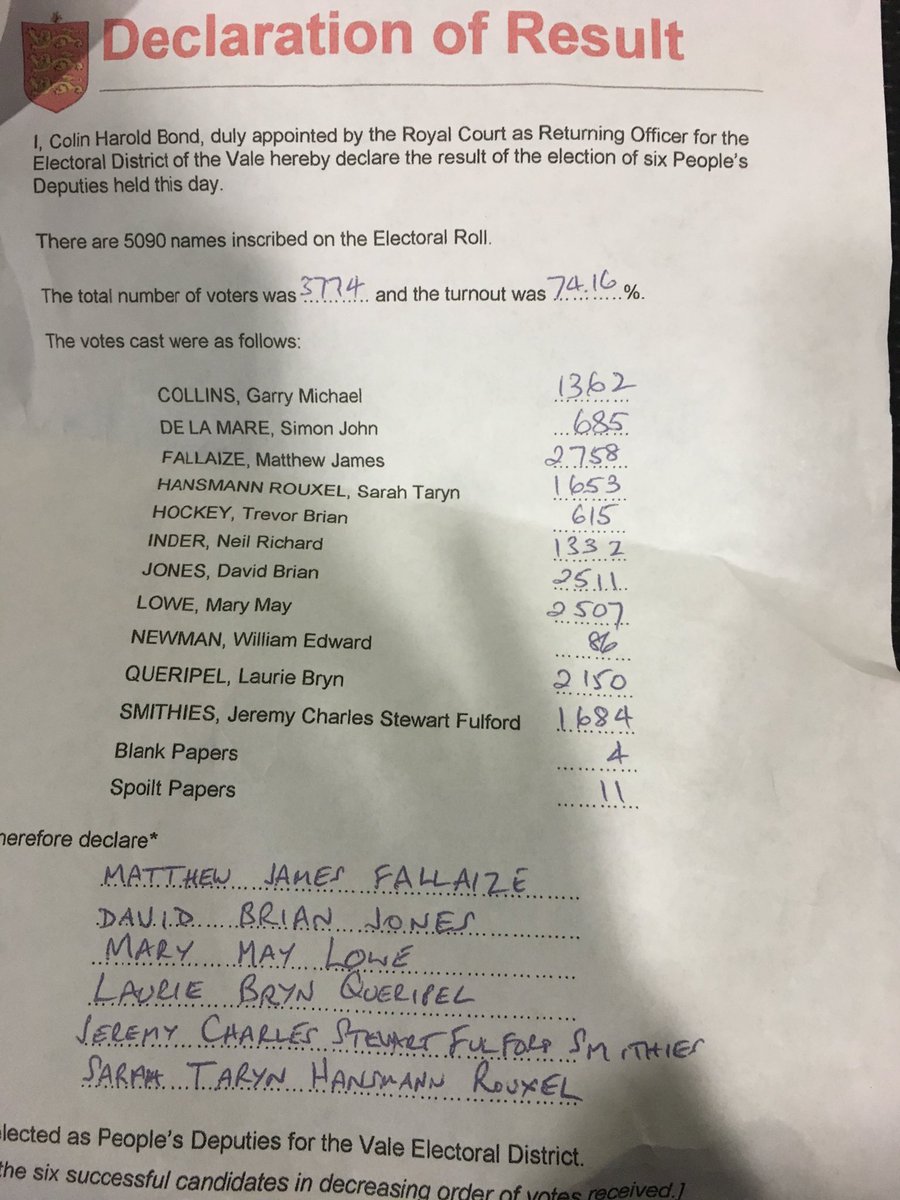 Declaration of Result
I, Colin Harold Bond, duly appointed by the Royal Court as Returning Officer for the
Electoral District of the Vale hereby declare the result of the election of six People's
Deputies held this day.
There are 5090 names inscribed on the Electoral Roll.
The total number of voters was 3774 and the turnout was 74.16 %.
The votes cast were as follows:
COLLINS, Garry Michael 1362
DE LA MARE, Simon John 685
FALLAIZE, Matthew James 2758
HANSMANN ROUXEL, Sarah Taryn 1653
HOCKEY, Trevor Brian 615
INDER, Neil Richard 1332
JONES, David Brian 2511
LOWE, Mary May 2507
NEWMAN, William Edward 86
QUERIPEL, Laurie Bryn 2150
SMITHIES, Jeremy Charles Stewart Fulford 1684
Blank Papers 4
Spoilt Papers 11
herefore declare*
MATTHEW JAMES FALLAIZE
DAVID BRIAN JONES
MARY MAY LOWE
LAURIE BRYN QUERIPEL
JEREMY CHARLES STEWART FULFORD SMITHIES
SARAH TARYN HANSMANN ROUXEL
elected as People's Deputies for the Vale Electoral District.
the six successful candidates in decreasing order of votes received.]